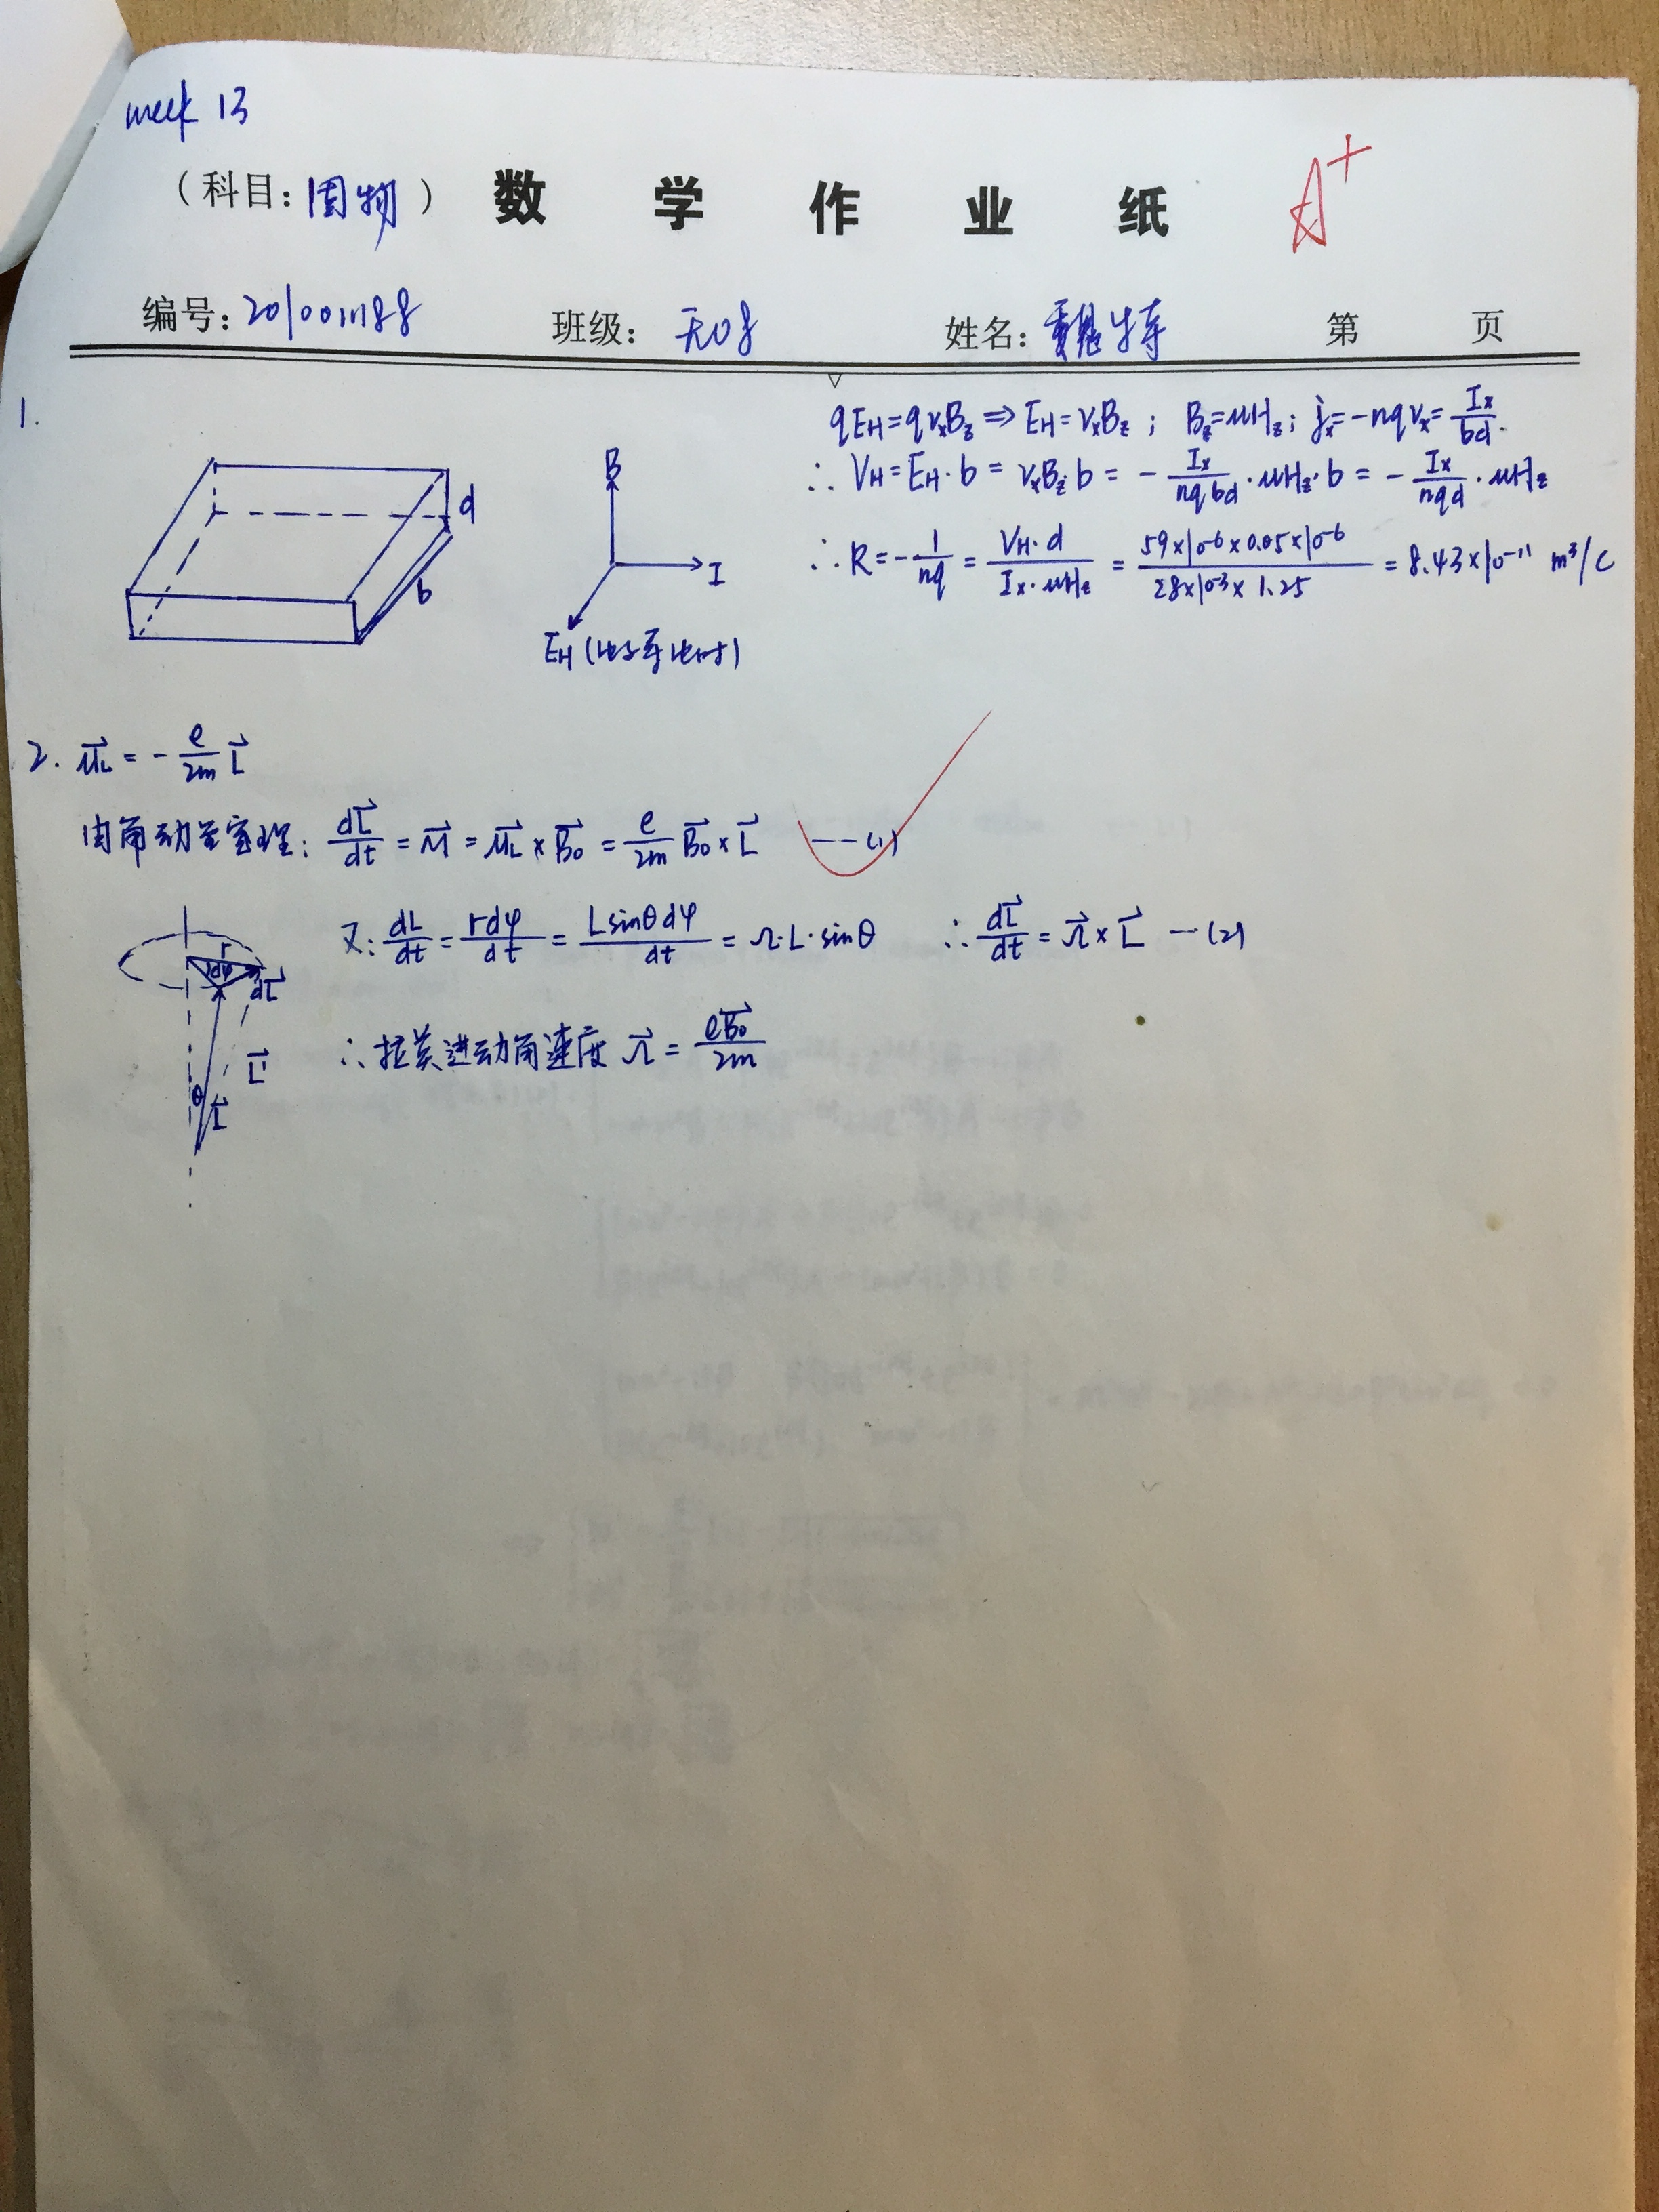 week 13
（科目：固物） 数 学 作 业 纸 A+
编号：2010011188 班级：无08 姓名： 第 页
1.
qE_H=qv_xB_z⇒E_H=v_xB_z；B_z=μH_z；j_x=-nqv_x=I_x/bd.
∴V_H=E_H·b=v_xB_z·b=-I_x/nqbd·μH_z·b=-I_x/nqd·μH_z
∴R=-1/nq=V_H·d/I_x·μH_z=59×10^-6×0.05×10^-6/28×10^-3×1.25=8.43×10^-11 m³/C
B
d
I
b
E_H（电子导电时）
2. μ_L=-e/2m L
由角动量定理：dL/dt=M=μ_L×B_0=e/2m B_0×L ---(1)
又：dL/dt=rdφ/dt=Lsinθdφ/dt=Ω·L·sinθ ∴dL/dt=Ω×L --(2)
r
dφ
dL
∴拉莫进动角速度 Ω=eB_0/2m
L
θ
L